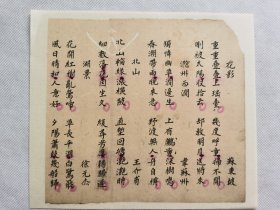 花影 蘇東坡
重重疊疊上瑤臺 幾度呼童掃不開
剛被太陽收拾去 却教明月送將來
滁州西澗 韋蘇州
獨憐幽草澗邊生 上有黃鸝深樹鳴
春潮帶雨晚來急 野渡無人舟自橫
北山 王介甫
北山輸綠漲橫陂 直塹回塘灩灩時
細數落花因坐久 緩尋芳草得歸遲
湖景 徐元杰
花開紅樹亂鶯啼 草長平湖白鷺飛
風日晴和人意好 夕陽簫鼓幾船歸